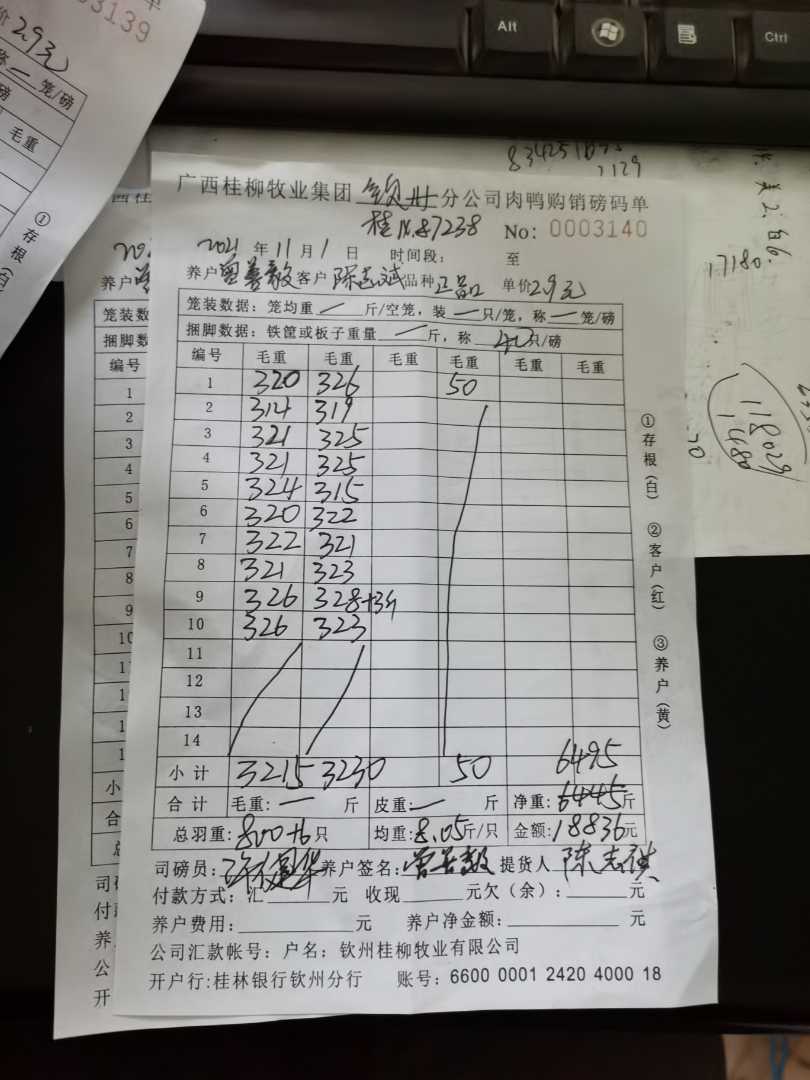 3139
价2.9元
笼/磅
毛重
①存根(白
Alt
Ctrl
8342516
1129
17180.
118029
1480
广西桂柳牧业集团 钦州 分公司肉鸭购销磅码单
桂N.87238 No: 0003140
2021 年 11 月 1 日 时间段: 至
养户曾善毅客户陈志斌品种正品 单价2.9元
笼装数据: 笼均重 一 斤/空笼, 装 一 只/笼, 称 一 笼/磅
捆脚数据: 铁筐或板子重量 一 斤, 称 40只/磅
编号 毛重 毛重 毛重 毛重 毛重 毛重
1 320 326 50
2 314 319
3 321 325
4 321 325
5 324 315
6 320 322
7 322 321
8 321 323
9 326 328+3斤
10 326 323
11
12
13
14
小计 3215 3230 50 6495
合计 毛重: 一 斤 皮重: 一 斤 净重: 6445斤
总羽重: 800+6只 均重: 8.05斤/只 金额: 18836元
司磅员: 养户签名: 曾善毅 提货人 陈志
付款方式: 汇 元 收现 元欠(余): 元
养户费用: 元 养户净金额: 元
公司汇款帐号: 户名: 钦州桂柳牧业有限公司
开户行:桂林银行钦州分行 账号: 6600 0001 2420 4000 18
①存根(白) ②客户(红) ③养户(黄)
养户
笼装数
捆脚数
编号
1
2
3
4
5
6
7
8
9
10
小
合
司
付
养
公
开